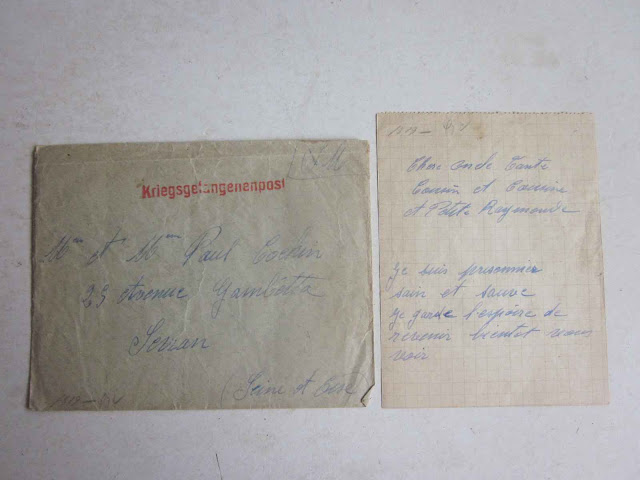 F.M
Kriegsgefangenenpost
Mr et Mme Paul Cochin
25 Avenue Gambetta
(Seine et Oise)
Cher Oncle Tante
Cousin et Cousine
et Petite Raymonde
Je suis prisonnier
sain et sauve
Je garde l'espoire de
revenir bientot vous
voir